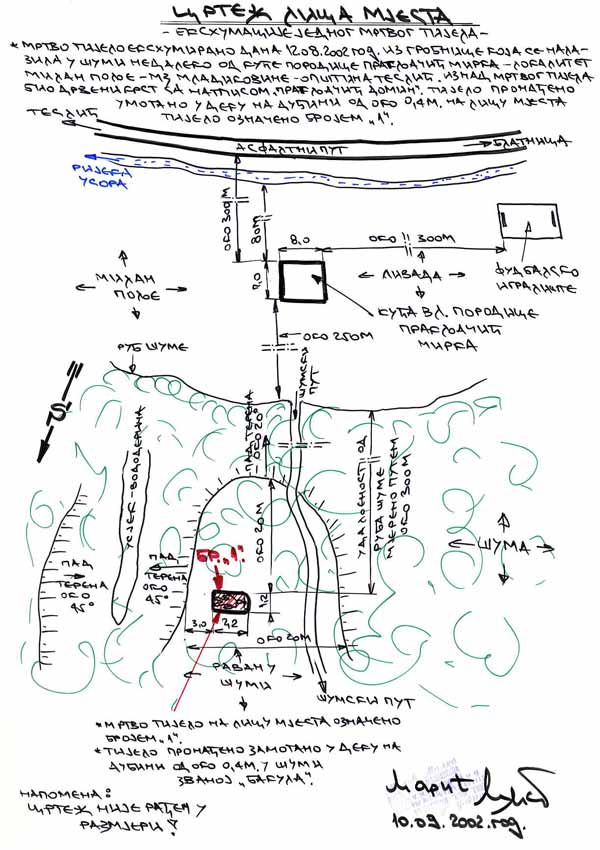 ЦРТЕЖ ЛИЦА МЈЕСТА
- ЕКСХУМАЦИЈЕ ЈЕДНОГ МРТВОГ ТИЈЕЛА -
* МРТВО ТИЈЕЛО ЕКСХУМИРАНО ДАНА 12.08.2002 ГОД. ИЗ ГРОБНИЦЕ КОЈА СЕ НАЛА-
ЗИЛА У ШУМИ НЕДАЛЕКО ОД КУЋЕ ПОРОДИЦЕ ПРАКЛОЧИЋ МИРКА - ЛОКАЛИТЕТ
МИЛАН ПОЉЕ - МЗ МЛАДИКОВИНЕ - ОПШТИНА ТЕСЛИЋ. ИЗНАД МРТВОГ ТИЈЕЛА
БИО ДРВЕНИ КРСТ СА НАТПИСОМ „ПРАКЛОЧИЋ ДОМИН“. ТИЈЕЛО ПРОНАЂЕНО
УМОТАНО У ДЕКУ НА ДУБИНИ ОД ОКО 0,4М. НА ЛИЦУ МЈЕСТА
ТИЈЕЛО ОЗНАЧЕНО БРОЈЕМ „1“.
ТЕСЛИЋ
АСФАЛТНИ ПУТ
БЛАТНИЦА
РИЈЕКА
УСОРА
ОКО 300М
80М
8,0
ОКО 300М
9,0
ФУДБАЛСКО
ИГРАЛИШТЕ
МИЛАН
ПОЉЕ
ЛИВАДА
КУЋА ВЛ. ПОРОДИЦЕ
ПРАКЛОЧИЋ
МИРКА
ОКО 250М
РУБ ШУМЕ
ШУМСКИ
ПУТ
ПАД ТЕРЕНА
ОКО 20°
УСЈЕК - ВОДОДЕРИНА
ОКО 20М
УДАЉЕНОСТ ОД
РУБА ШУМЕ
МЈЕРЕНО ПУТЕМ
ОКО 300М
ШУМА
БР. „1“
ПАД
ТЕРЕНА
ОКО
45°
ПАД
ТЕРЕНА
ОКО
45°
1,2
3,0
2,2
ОКО 20М
РАВАН У
ШУМИ
ШУМСКИ ПУТ
* МРТВО ТИЈЕЛО НА ЛИЦУ МЈЕСТА ОЗНАЧЕНО
БРОЈЕМ „1“.
* ТИЈЕЛО ПРОНАЂЕНО ЗАМОТАНО У ДЕКУ НА
ДУБИНИ ОД ОКО 0,4М, У ШУМИ
ЗВАНОЈ „БАКУЛА“.
НАПОМЕНА:
ЦРТЕЖ НИЈЕ РАЂЕН У
РАЗМЈЕРИ!
10.09.2002.год.